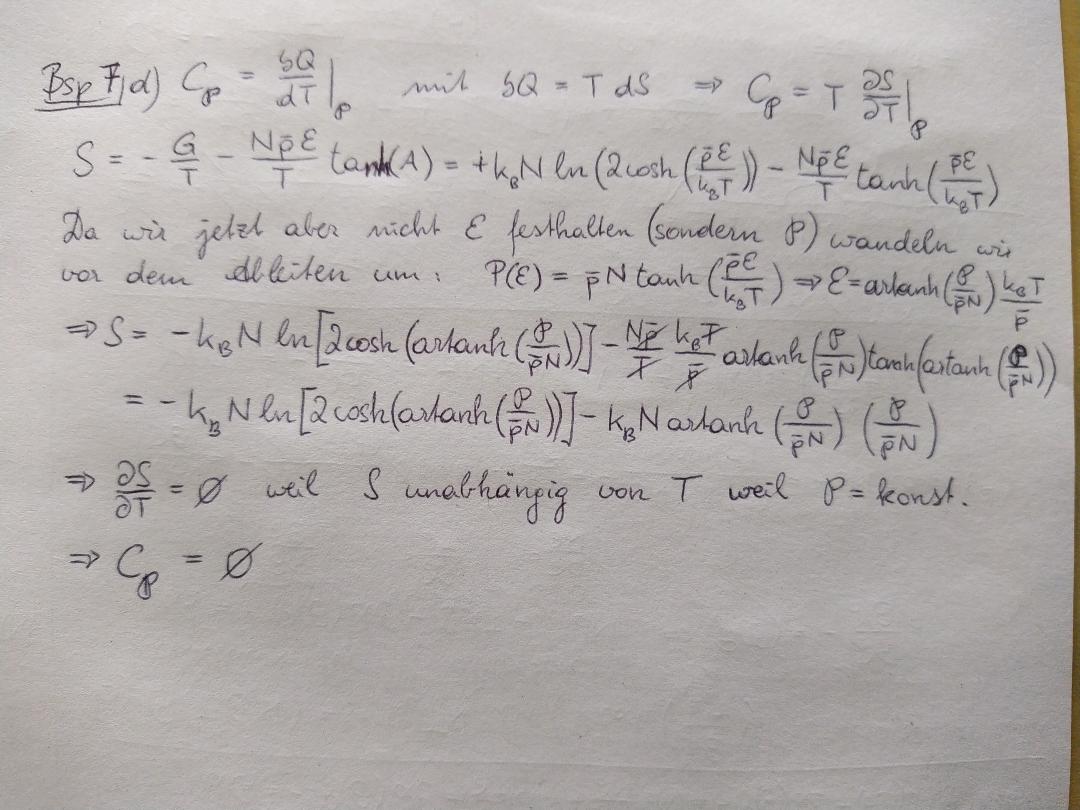 Bsp 7|d) C_𝒫 = δQ/dT |_𝒫 mit δQ = T dS ⇒ C_𝒫 = T ∂S/∂T |_𝒫
S = - G/T - Np̄ℰ/T tanh(A) = +k_B N ln(2cosh(p̄ℰ/k_BT)) - Np̄ℰ/T tanh(p̄ℰ/k_BT)
Da wir jetzt aber nicht ℰ festhalten (sondern 𝒫) wandeln wir
vor dem Ableiten um: 𝒫(ℰ) = p̄ N tanh(p̄ℰ/k_BT) ⇒ ℰ = artanh(𝒫/p̄N) k_BT/p̄
⇒ S = -k_B N ln[2cosh(artanh(𝒫/p̄N))] - Np̄/T k_BT/p̄ artanh(𝒫/p̄N) tanh(artanh(𝒫/p̄N))
= -k_B N ln[2cosh(artanh(𝒫/p̄N))] - k_B N artanh(𝒫/p̄N) (𝒫/p̄N)
⇒ ∂S/∂T = Ø weil S unabhängig von T weil 𝒫 = konst.
⇒ C_𝒫 = Ø